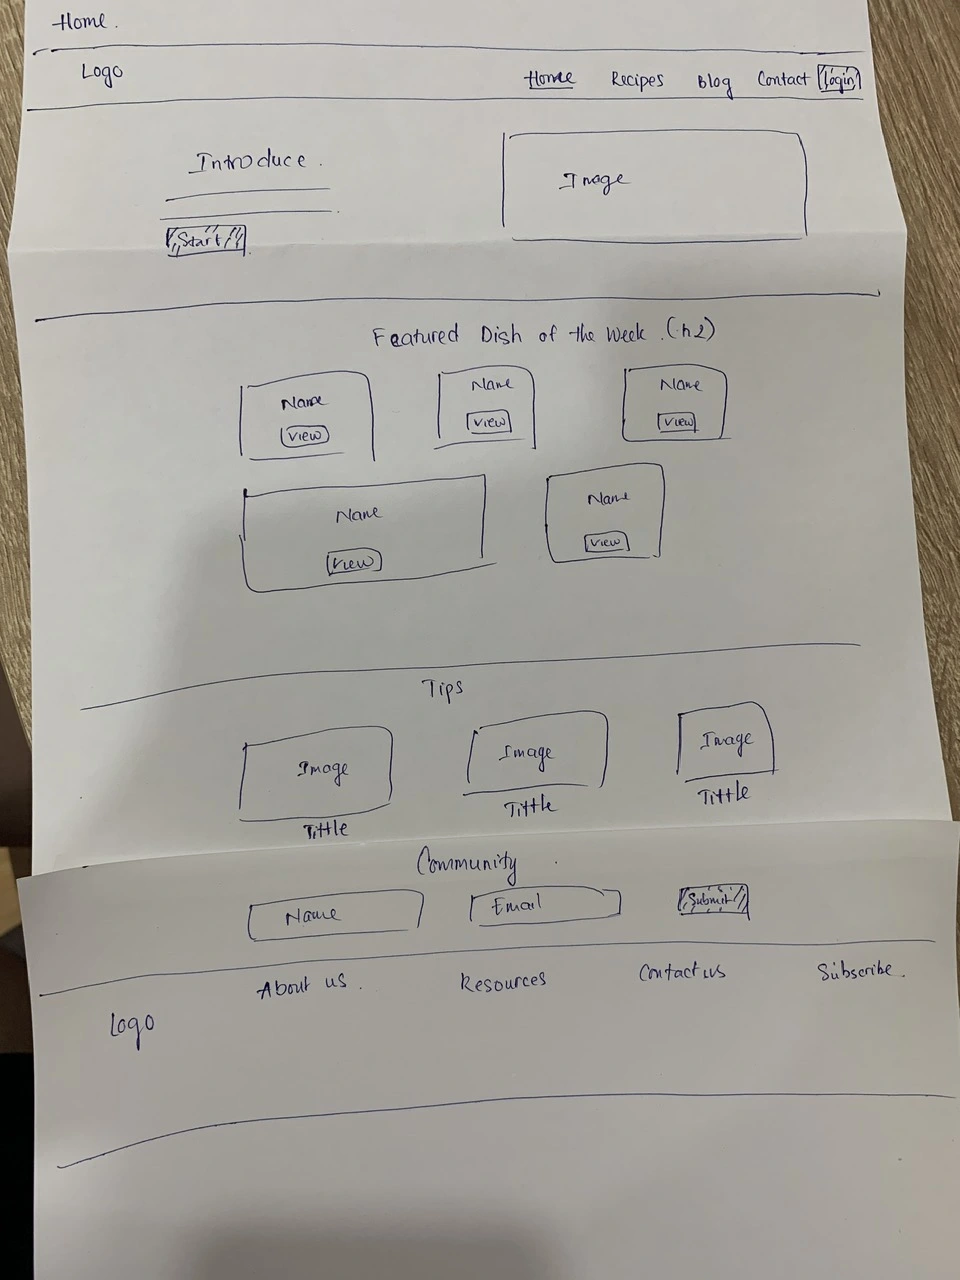 Home.
Logo Home Recipes Blog Contact Login
Introduce.
Image
Start
Featured Dish of the Week.(h2)
Name Name Name
View View View
Name Name
View View
Tips
Image Image Image
Tittle Tittle Tittle
Community
Name Email Submit
About us. Resources Contact us Subscribe.
Logo